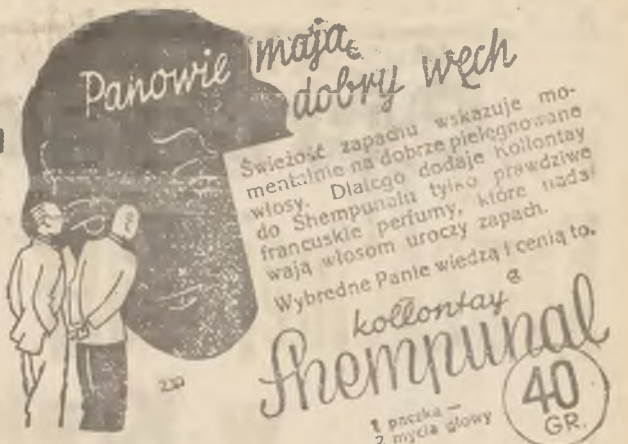 Panowie mają
dobry węch
Świeżość zapachu wskazuje mo-
mentalnie na dobrze pielęgnowane
włosy. Dlatego dodaje Kollontay
do Shempunalu tylko prawdziwe
francuskie perfumy, które nada-
wają włosom uroczy zapach.
Wybredne Panie wiedzą i cenią to.
kollontay
Shempunal
1 paczka —
2 mycia głowy
40
GR.